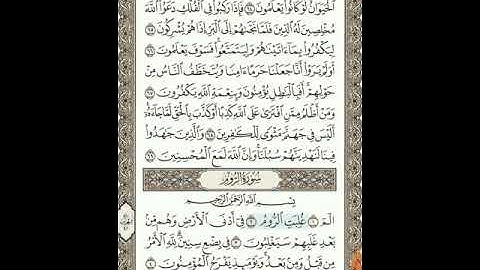 ٱلْحَيَوَانُ لَوْ كَانُوا۟ يَعْلَمُونَ ٦٤ فَإِذَا رَكِبُوا۟ فِى ٱلْفُلْكِ دَعَوُا۟ ٱللَّهَ
مُخْلِصِينَ لَهُ ٱلدِّينَ فَلَمَّا نَجَّىٰهُمْ إِلَى ٱلْبَرِّ إِذَا هُمْ يُشْرِكُونَ ٦٥
لِيَكْفُرُوا۟ بِمَآ ءَاتَيْنَٰهُمْ وَلِيَتَمَتَّعُوا۟ فَسَوْفَ يَعْلَمُونَ ٦٦
أَوَلَمْ يَرَوْا۟ أَنَّا جَعَلْنَا حَرَمًا ءَامِنًا وَيُتَخَطَّفُ ٱلنَّاسُ مِنْ
حَوْلِهِمْ أَفَبِٱلْبَٰطِلِ يُؤْمِنُونَ وَبِنِعْمَةِ ٱللَّهِ يَكْفُرُونَ ٦٧
وَمَنْ أَظْلَمُ مِمَّنِ ٱفْتَرَىٰ عَلَى ٱللَّهِ كَذِبًا أَوْ كَذَّبَ بِٱلْحَقِّ لَمَّا جَآءَهُۥٓ
أَلَيْسَ فِى جَهَنَّمَ مَثْوًى لِّلْكَٰفِرِينَ ٦٨ وَٱلَّذِينَ جَٰهَدُوا۟
فِينَا لَنَهْدِيَنَّهُمْ سُبُلَنَا وَإِنَّ ٱللَّهَ لَمَعَ ٱلْمُحْسِنِينَ ٦٩
سُورَةُ الرُّومِ
بِسْمِ ٱللَّهِ ٱلرَّحْمَٰنِ ٱلرَّحِيمِ
الٓمٓ ١ غُلِبَتِ ٱلرُّومُ ٢ فِىٓ أَدْنَى ٱلْأَرْضِ وَهُم مِّنۢ
بَعْدِ غَلَبِهِمْ سَيَغْلِبُونَ ٣ فِى بِضْعِ سِنِينَ لِلَّهِ ٱلْأَمْرُ
مِن قَبْلُ وَمِنۢ بَعْدُ وَيَوْمَئِذٍ يَفْرَحُ ٱلْمُؤْمِنُونَ ٤